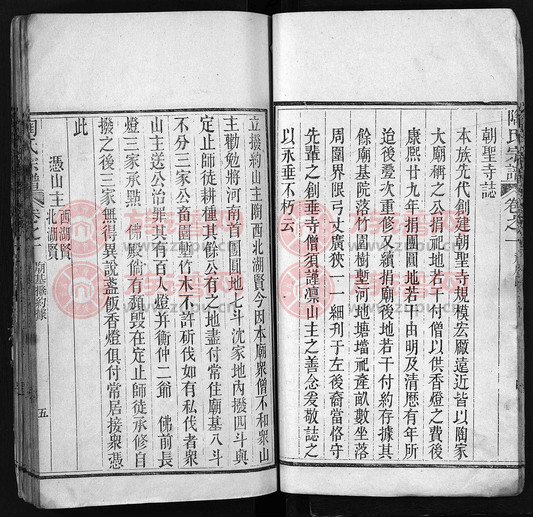 陶氏宗譜
卷之一
朝聖寺誌
本族先代創建朝聖寺規模宏厰遠近皆以陶家
大廟稱之公捐祀地若干付僧以供香燈之費明
康熙廿九年捐團圓地若干由明及清歷有年所
迨後疊次重修又續捐廟後地若干付約存據其
餘廟基院落竹園樹塹河地塘壋祀產畝數坐落
周圍界限弓丈廣狹一一細刋于左後裔當恪守
先輩之創垂寺僧須謹凛山主之善念爰敬誌之
以永垂不朽云
立撥約山主陶西北湖賢今因本廟衆僧不和衆山
主勸勉將河南首團圓地七斗沈家地内撥四斗與
定止師徒耕種其餘公有之地盡付常住廟基八斗
不分三家公畜園蓄竹木不許斫伐如有私伐者衆
山主送公治罪其有百人燈并衝仲二爺 佛前長
燈三家承㸃 佛殿倘有頽毁在定止師徒承修自
撥之後三家無得異說盞飯香燈俱付常居接衆憑
此
憑山主 西湖賢
北湖賢
陶氏宗譜
卷之一
五